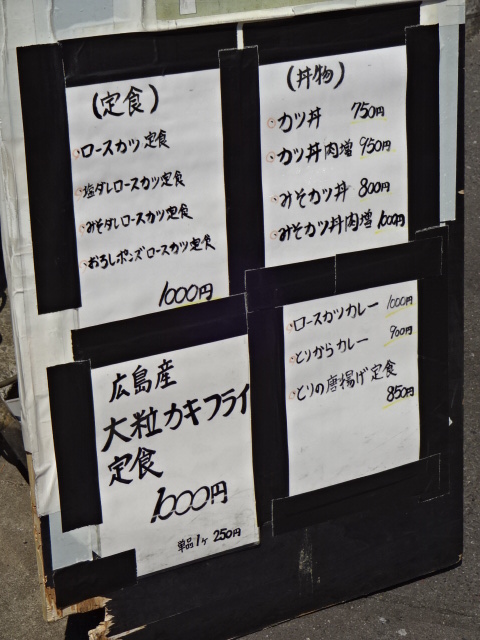 (定食)
ロースカツ定食
塩ダレロースカツ定食
みそダレロースカツ定食
おろしポンズロースカツ定食
1000円
(丼物)
カツ丼 750円
カツ丼肉増 950円
みそカツ丼 800円
みそカツ丼肉増 1000円
広島産
大粒カキフライ
定食
1000円
単品1ヶ 250円
ロースカツカレー 1000円
とりからカレー 900円
とりの唐揚げ定食
850円